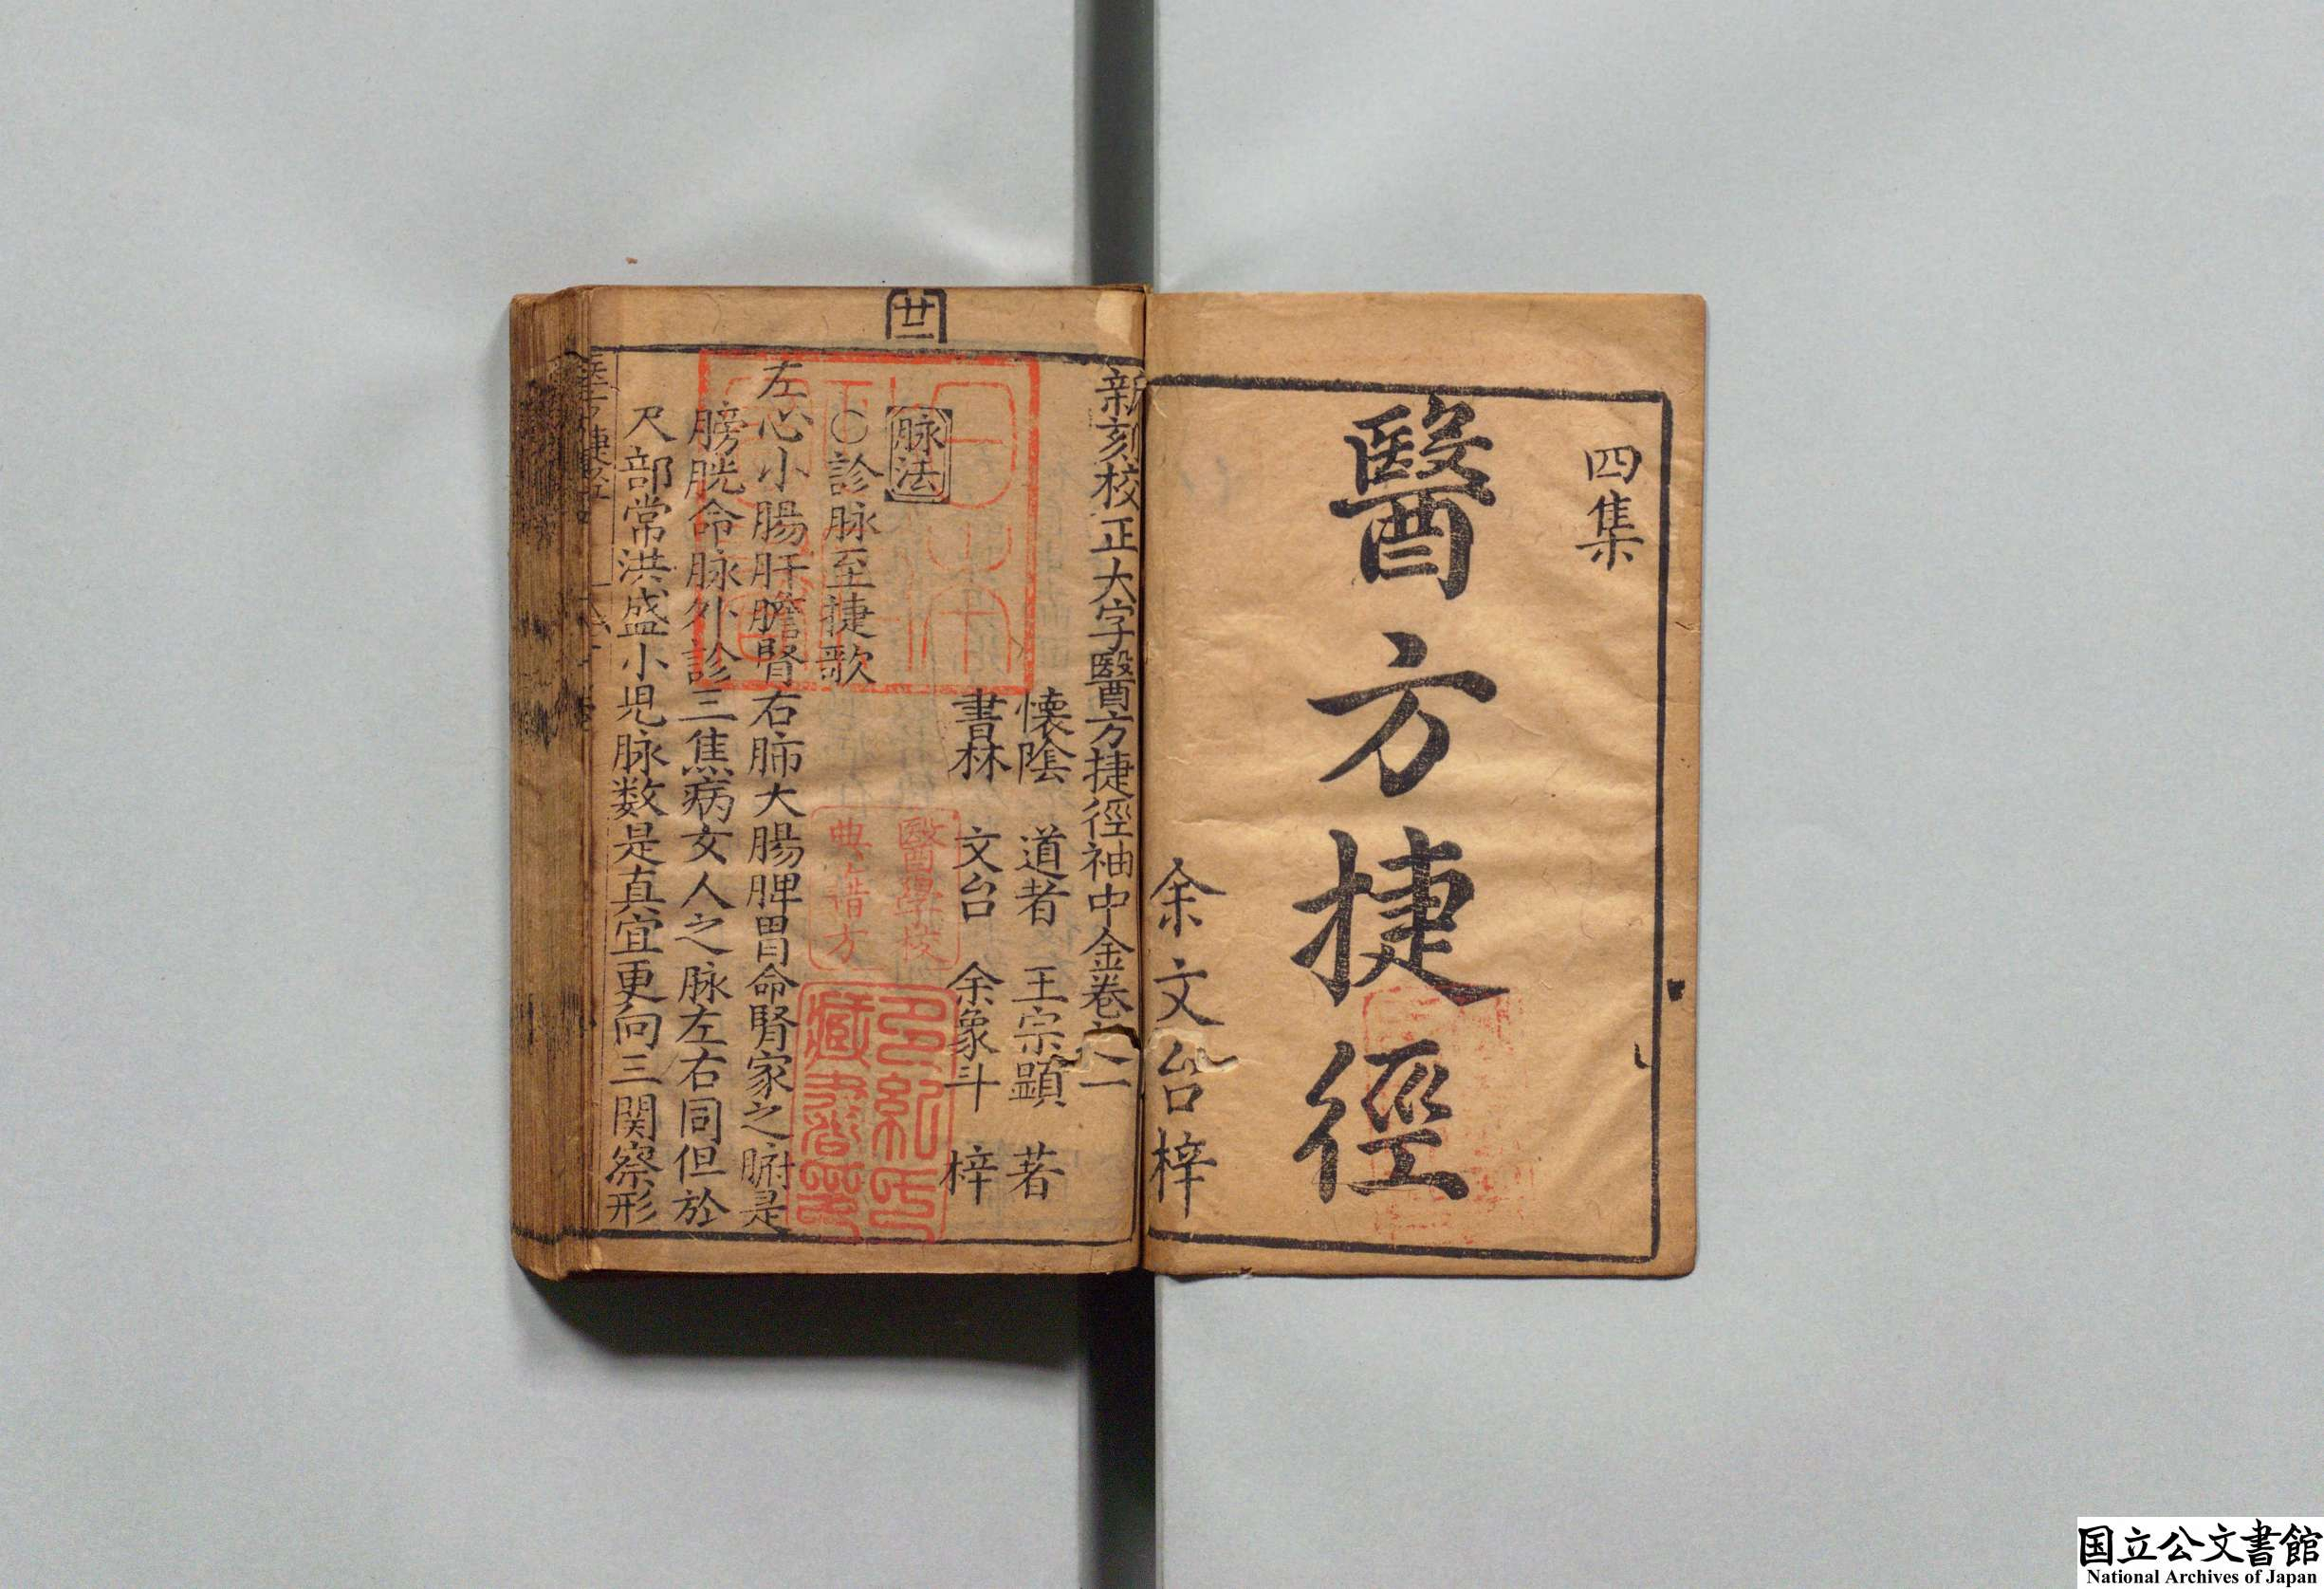 四集
醫方捷徑
余文台梓
廿一
新刻校正大字醫方捷徑袖中金卷之一
懐陰 道者 王宗顕 著
書林 文台 余象斗 梓
脉法
○診脉至捷歌
左心小腸肝膽腎右肺大腸脾胃命腎家之腑是
膀胱命脉外診三焦病女人之脉左右同但於
尺部常洪盛小児脉数是真宜更向三関察形
醫學校
典籍方
多紀氏
藏書印
国立公文書館
National Archives of Japan